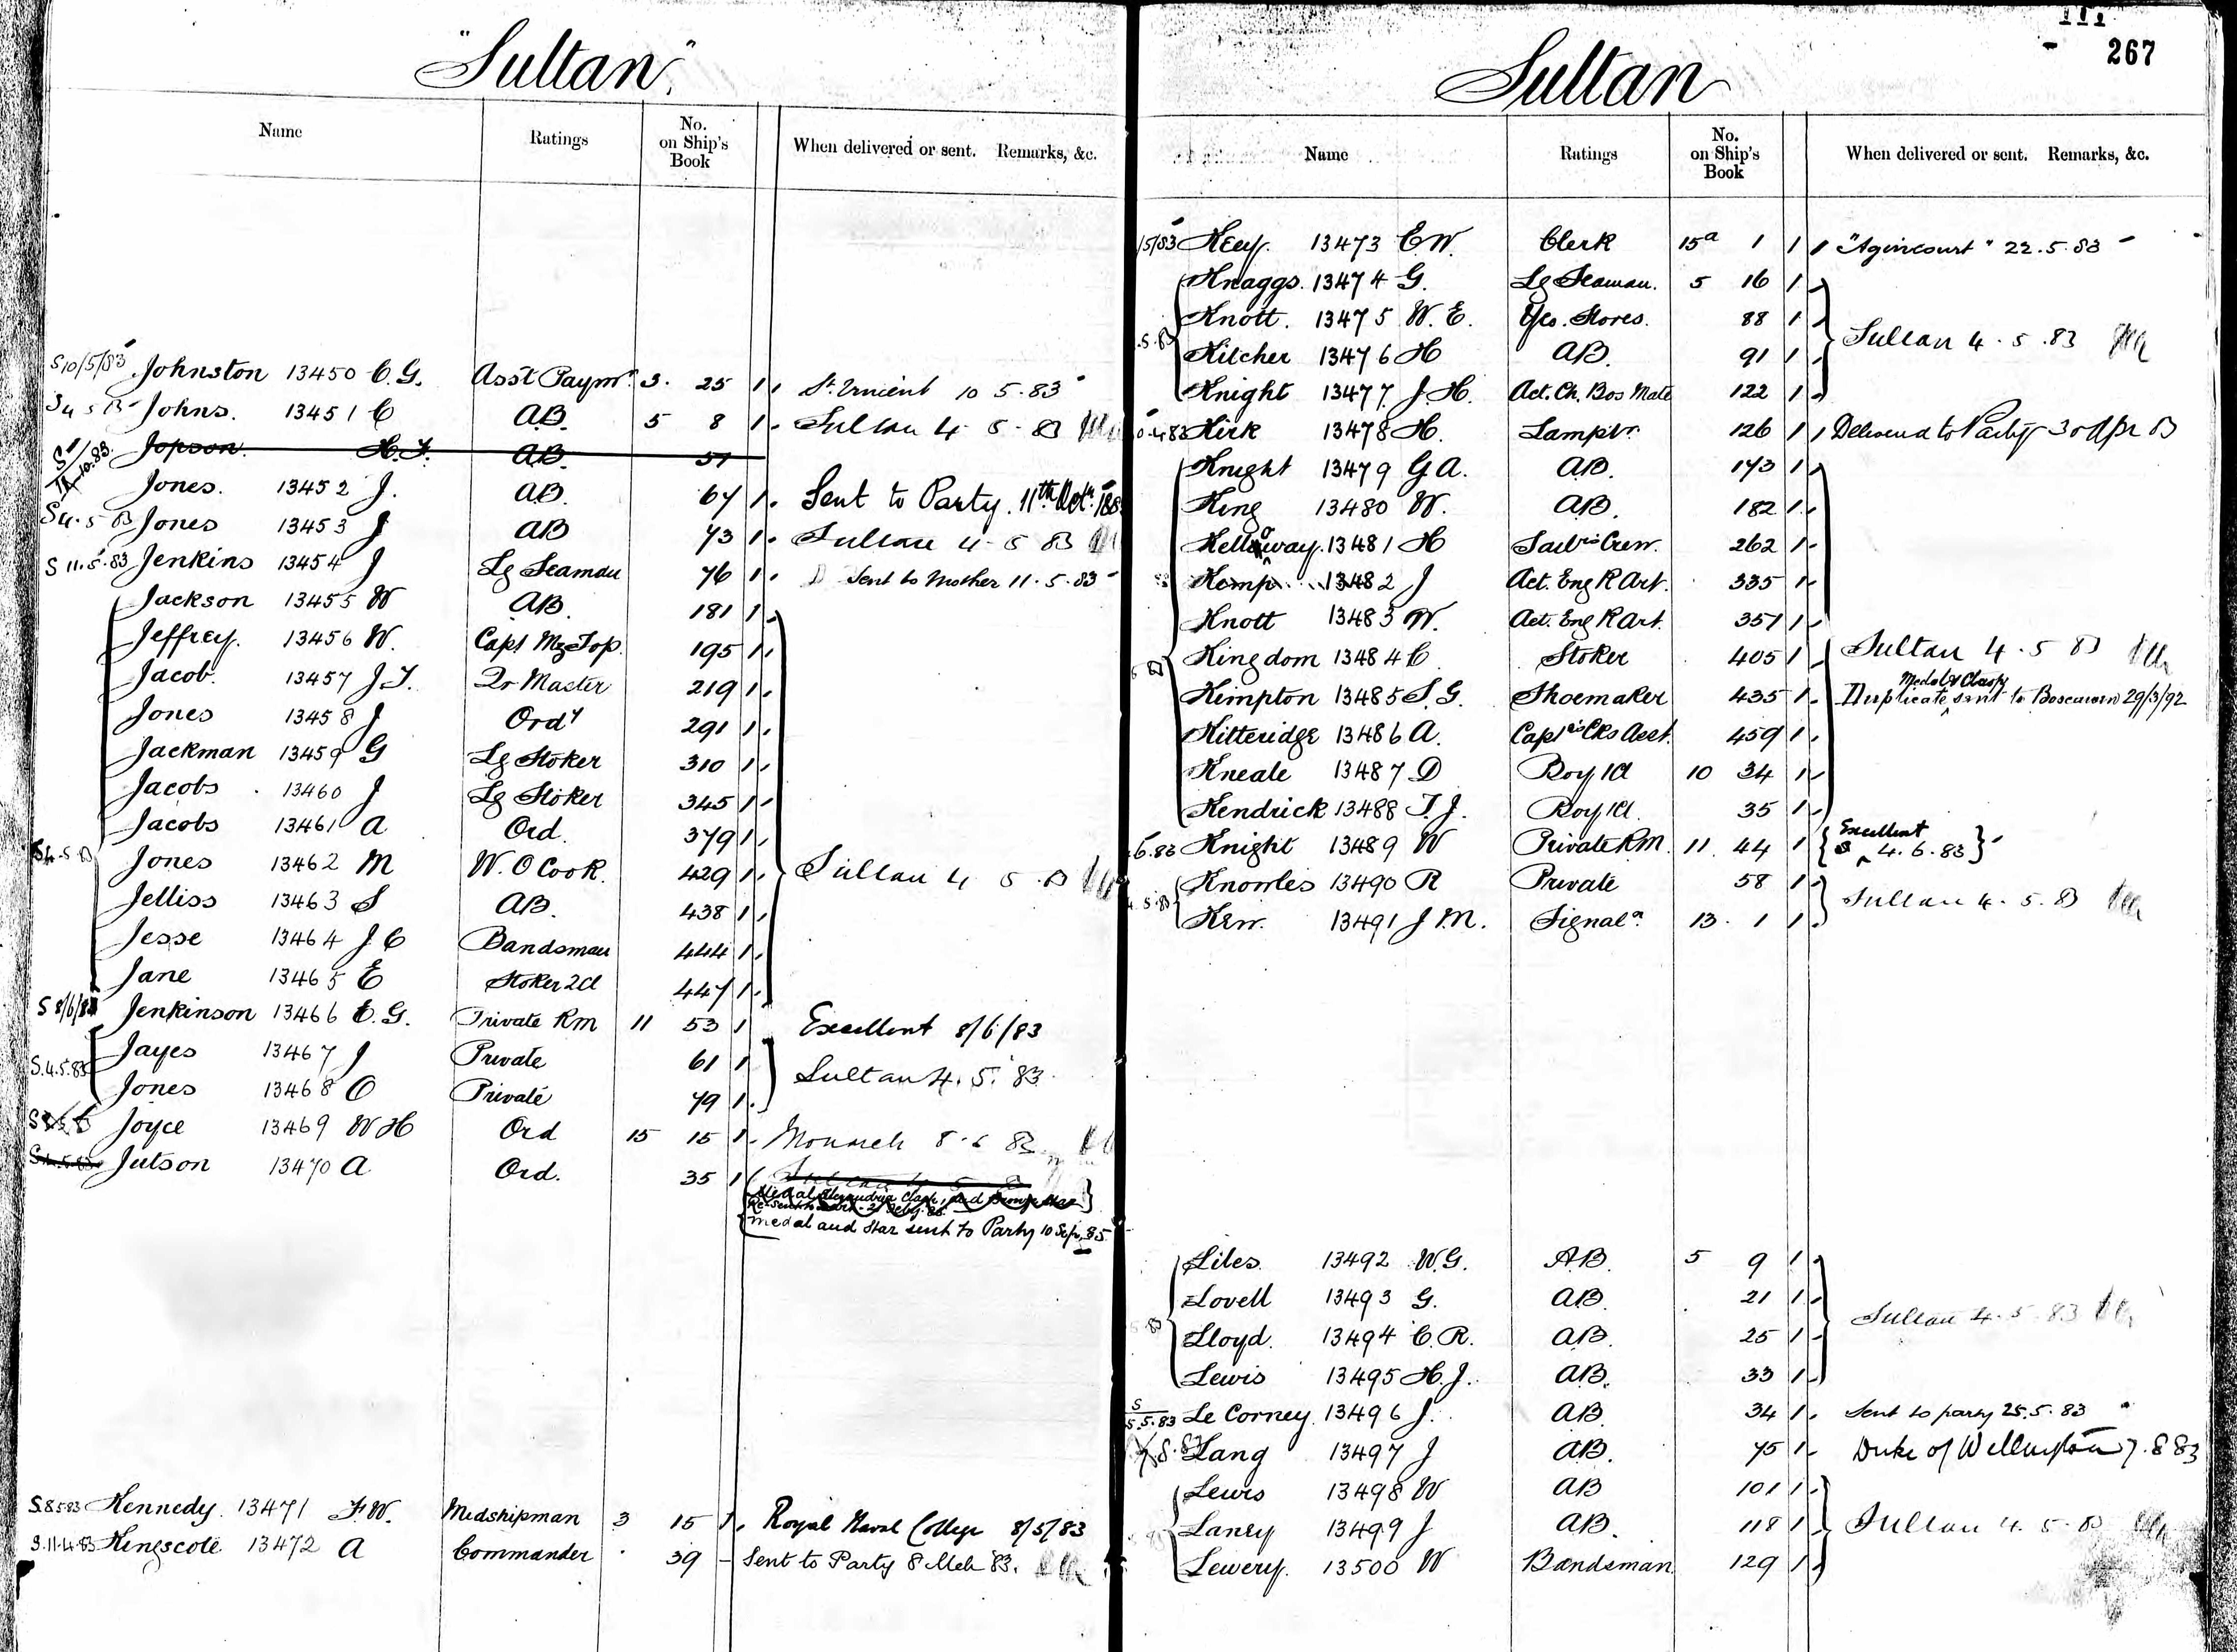 "Sultan"
Name Ratings No. on Ship's Book When delivered or sent. Remarks, &c.
S10/5/83 Johnston 13450 C.G. Asst Paymr. 3. 25 1 St. Vincent 10 5.83
S4 5 83 Johns. 13451 C AB. 5 8 1 Sultan 4. 5. 83
Jopson H.J. AB. 51
10.83 Jones. 13452 J. AB. 67 1 Sent to Party. 11th Octr.
S4.5 83 Jones 13453 J AB 73 1 Sultan 4. 5 83
S 11.5.83 Jenkins 13454 J Lg Seaman 76 1 D Sent to Mother 11.5.83
Jackson 13455 W AB. 181 1
Jeffrey. 13456 W. Capt Mz Top. 195 1
Jacob. 13457 J.T. Qr Master 219 1
Jones 13458 J Ordy 291 1
Jackman 13459 G Lg Stoker 310 1
Jacobs 13460 J Lg Stoker 345 1
Jacobs 13461 A Ord. 379 1
S4.5.83 Jones 13462 M W.O Cook. 429 1 Sultan 4 5.83
Jelliss 13463 S AB. 438 1
Jesse 13464 J.C Bandsman 444 1
Jane 13465 E Stoker 2Cl 447 1
S 8/6/83 Jenkinson 13466 E.G. Private Rm 11 53 1 Excellent 8/6/83
Jayes 13467 J Private 61 1
S.4.5.83 Jones 13468 O Private 79 1 Sultan 4.5.83.
Joyce 13469 W H Ord 15 15 1 Monarch 8.6 83
S4.5.83 Jutson 13470 A Ord. 35 1
Medal Alexandria Clasp, and Bronze Star
Medal and Star sent to Party 10 Sepr. 85.
S8583 Kennedy. 13471 F.W. Midshipman 3 15 1 Royal Naval College 8/5/83
S.11.4.83 Kingscote 13472 A Commander 39 - Sent to Party 8 Mch 83.
267
Sultan
Name Ratings No. on Ship's Book When delivered or sent. Remarks, &c.
/5/83 Keey. 13473 E.W. Clerk 15a 1 1 "Agincourt" 22.5.83
Knaggs. 13474 G. Lg Seaman. 5 16 1
Knott. 13475 W.E. Yeo. Stores. 88 1
.5.83 Kilcher 13476 H AB. 91 1 Sultan 4.5.83
Knight 13477 J.H. Act. Ch. Bos Mate 122 1
0.483 Kirk 13478 H. Lamptr. 126 1 Delivered to Party 30 Apr 83
Knight 13479 G A. AB. 173 1
King 13480 W. AB. 182 1
Kelloway. 13481 H Sailrs Crew. 262 1
Kemp 13482 J Act. Eng R Art. 335 1
Knott 13483 W. Act. Eng R Art. 357 1
Kingdom 13484 C Stoker 405 1 Sultan 4.5 83
Kimpton 13485 S.G. Shoemaker 435 1 Duplicate Medal & Clasp sent to Boscawen 29/3/92
Kitteridge 13486 A. Capts Cks Asst. 459 1
Kneale 13487 D Boy 1Cl 10 34 1
Kendrick 13488 T.J. Boy 1Cl. 35 1
.6.83 Knight 13489 W Private R.M. 11. 44 1 S Excellent 4.6.83
Knowles 13490 R Private 58 1
4.5.83 Kew. 13491 J.M. Signaln. 13. 1 1 Sultan 4.5.83
Liles. 13492 W.G. AB. 5 9 1
Lovell 13493 G. AB. 21 1
Lloyd. 13494 C.R. AB. 25 1 Sultan 4.5.83
Lewis 13495 H.J. AB. 33 1
S 5.5.83 Le Corney. 13496 J. AB. 34 1 Sent to party 25.5.83
Lang 13497 J AB. 75 1 Duke of Wellington 7.8 83
Lewis 13498 W AB 101 1
Laney 13499 J AB. 118 1 Sultan 4.5.83
Lewery. 13500 W Bandsman 129 1